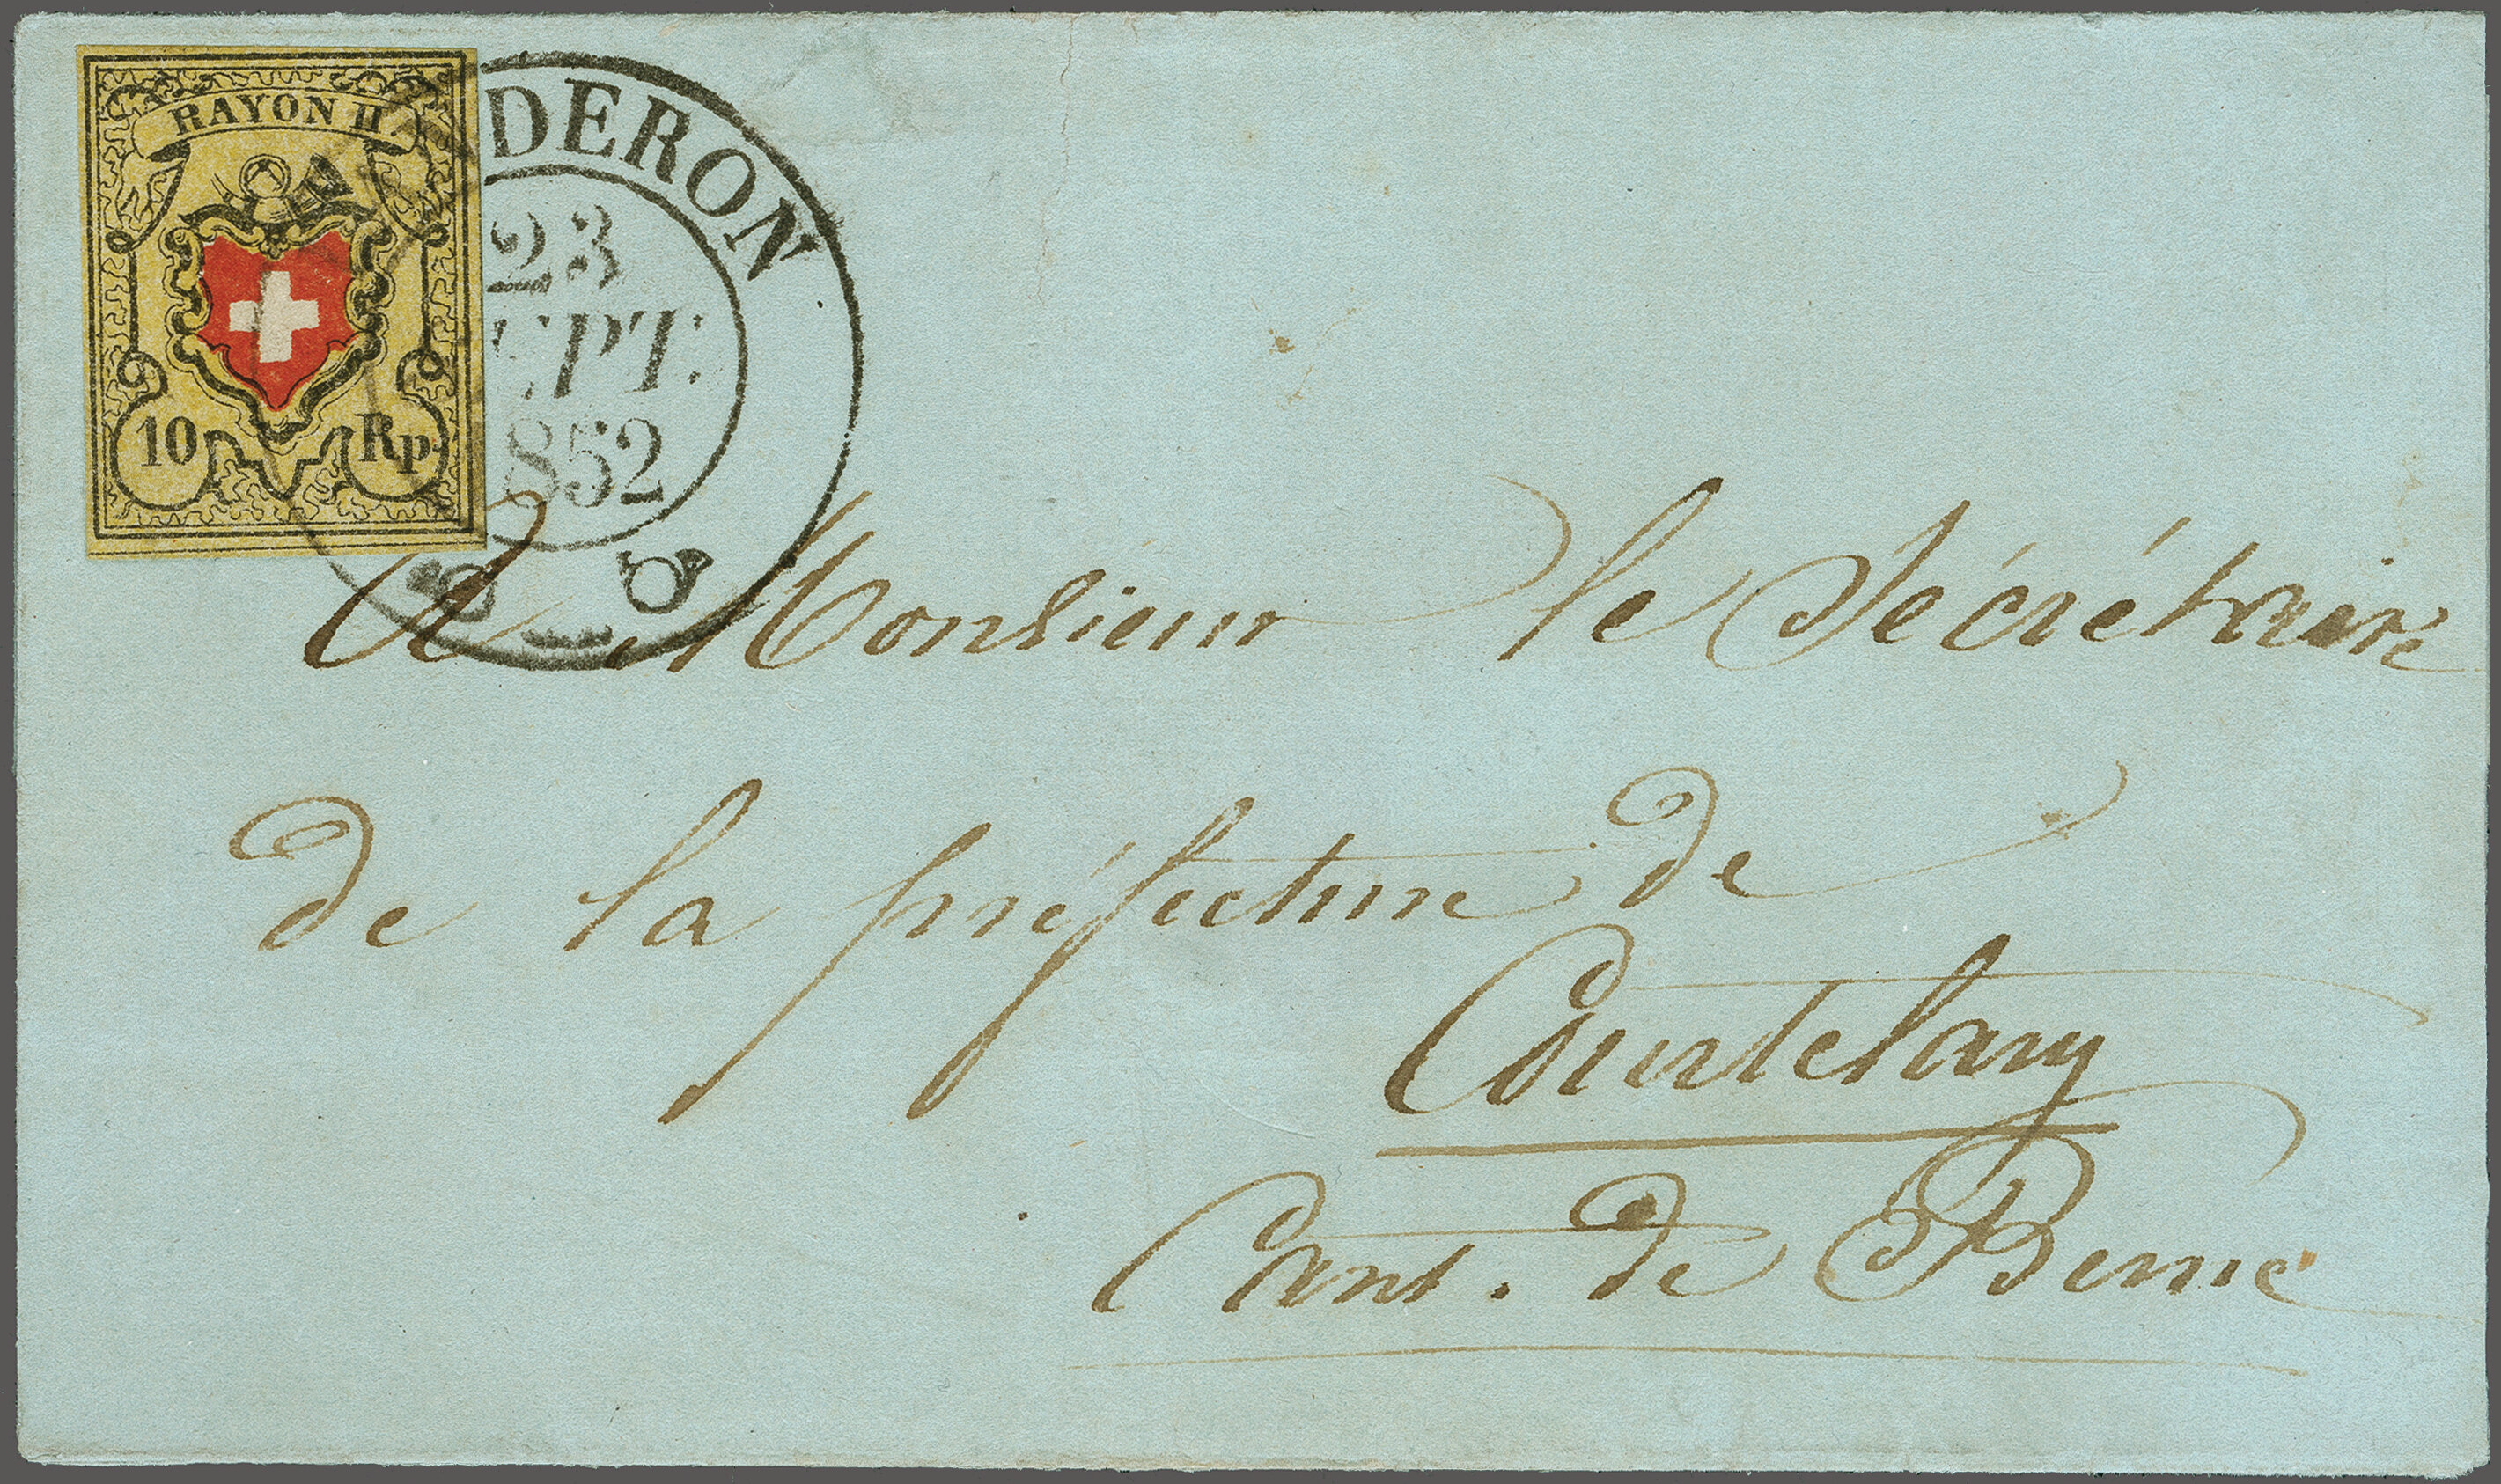 RAYON II
10 Rp.
DERON
23
EPT.
852
A Monsieur le Sécrétaire
de la préfecture de
Courtelary
Cant. de Berne